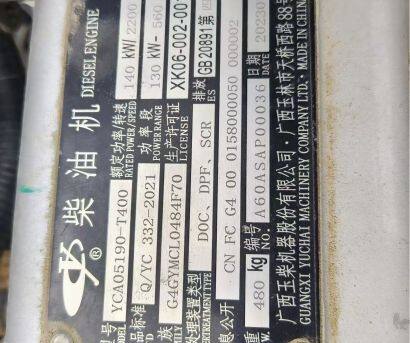 柴油机
DIESEL ENGINE
型号 MODEL YCA05190-T400 额定功率/转速 140 kW/ 2200
品标准 Q/YC 332-2021 功率段 POWER RANGE 130 kW- 560
族 FAMILY G4GYMCL0484F70 生产许可证 LICENSE XK06-002-001
处理装置类型 TREATMENT TYPE DOC、DPF、SCR 排放 ES GB 20891第四
息公开 CN FC G4 00 0158000050 000002
重 480 kg 编号 A60ASAP00036 日期 20230
广西玉柴机器股份有限公司·广西玉林市天桥西路88号
GUANGXI YUCHAI MACHINERY COMPANY LTD.·MADE IN CHINA